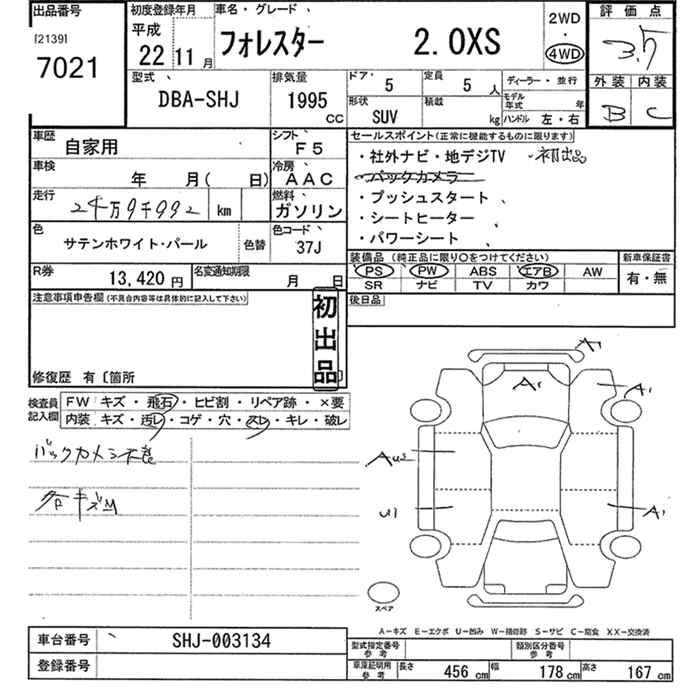 出品番号
[2139]
7021
初度登録年月
平成
22 11 月
車名・グレード
フォレスター 2.0XS
2WD
・
4WD
評価点
3.5
外装 内装
B C
型式
DBA-SHJ
排気量
1995
CC
ドア・ 5
定員 5 人
形状 SUV
積載 kg
ディーラー・並行
モデル年式 年
ハンドル 左・右
車歴 自家用
シフト F5
車検 年 月( 日)
冷房 AAC
走行 km
燃料 ガソリン
色 サテンホワイト・パール
色替
色コード 37J
R券 13,420 円
名変通知期限 月 日
セールスポイント(正常に機能するものに限ります)
・社外ナビ・地デジTV ・初出品
・バックカメラ
・プッシュスタート
・シートヒーター
・パワーシート
装備品(純正品に限り○をつけてください)
PS PW ABS エアB AW
SR ナビ TV カワ
新車保証書
有・無
後日品
注意事項申告欄(不具合内容等は具体的に記入して下さい)
初出品
修復歴 有〔箇所 〕
検査員記入欄
FW キズ・飛石・ヒビ割・リペア跡・×要
内装 キズ・汚レ・コゲ・穴・スレ・キレ・破レ
バックカメラ不良
A1
A1
A1
U1
A1
スペア
A−キズ E−エクボ U−凹み W−補修跡 S−サビ C−腐食 XX−交換済
車台番号 SHJ-003134
登録番号
型式指定番号 参考
類別区分番号 参考
車庫証明用 参考
長さ 456 cm
幅 178 cm
高さ 167 cm